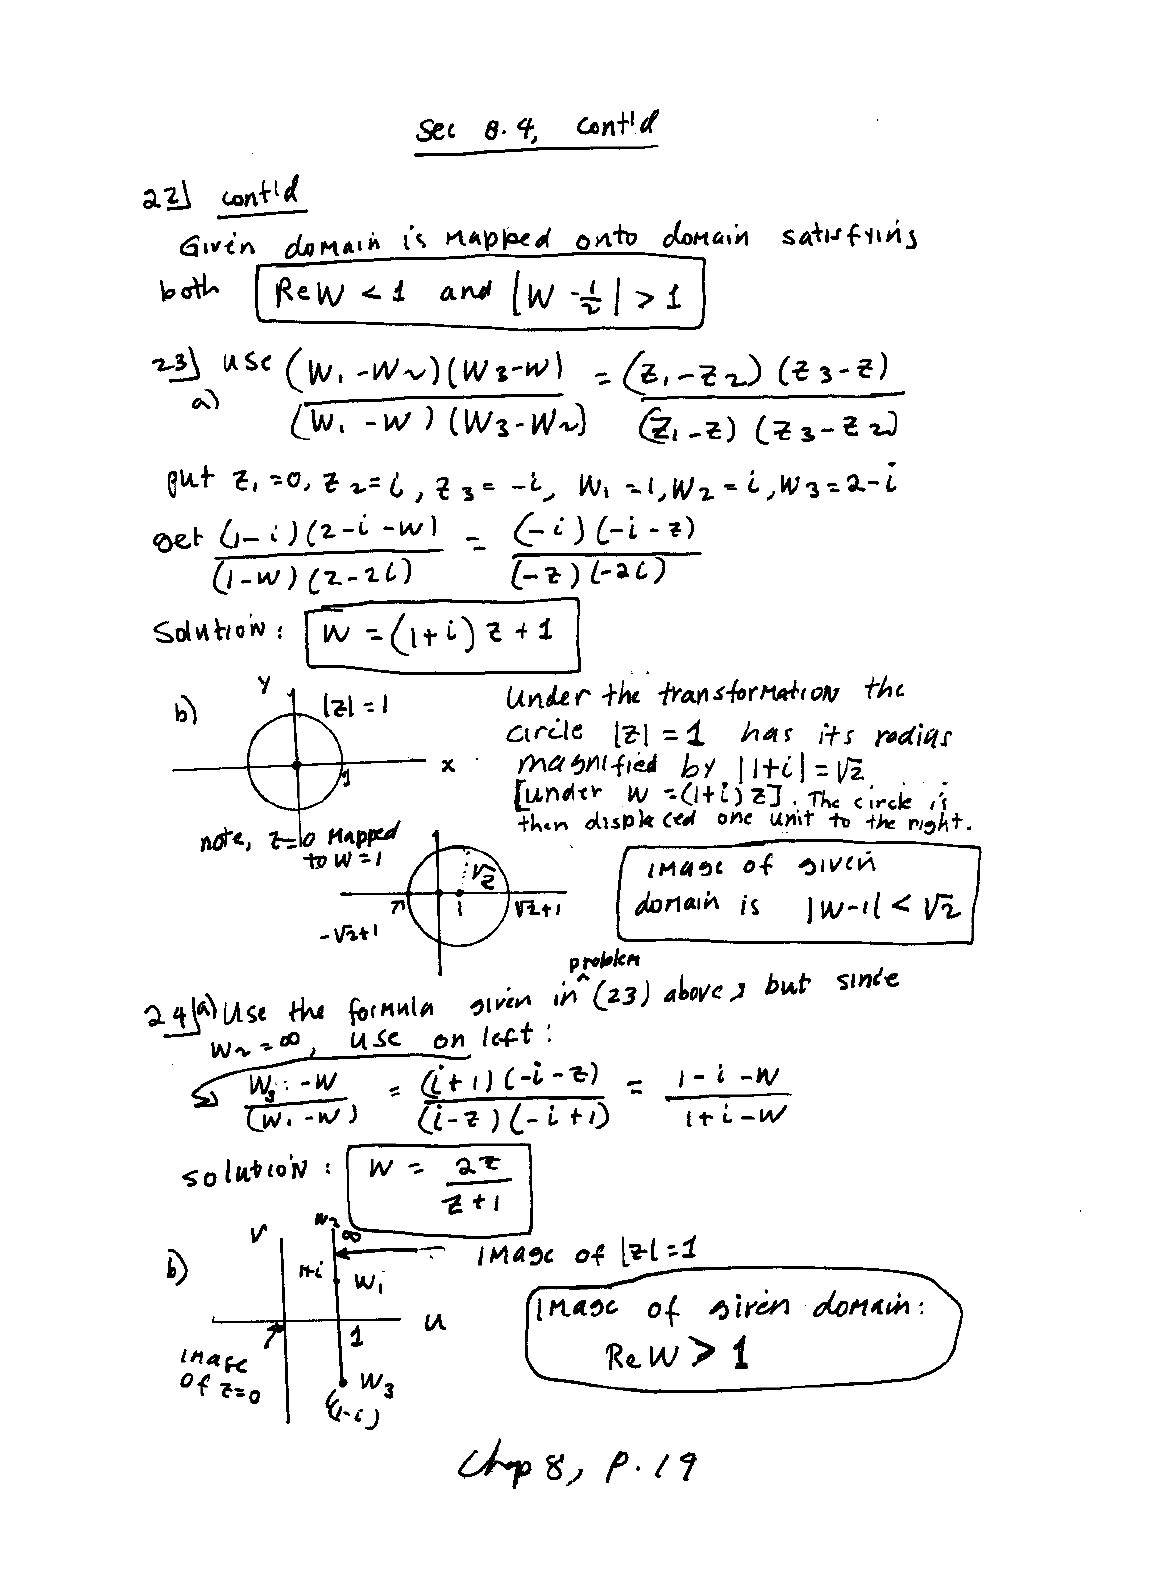 Sec 8.4, cont'd
22] cont'd
Given domain is mapped onto domain satisfying
both Re W < 1 and |W - 1/2| > 1
23] use (W1 - W2)(W3 - W) / (W1 - W)(W3 - W2) = (Z1 - Z2)(Z3 - Z) / (Z1 - Z)(Z3 - Z2)
a)
put Z1 = 0, Z2 = i, Z3 = -i, W1 = 1, W2 = i, W3 = 2-i
get (1-i)(2-i-W) / (1-W)(2-2i) = (-i)(-i-Z) / (-Z)(-2i)
Solution: W = (1+i) Z + 1
b) y |Z| = 1
x 1
Under the transformation the
circle |Z| = 1 has its radius
magnified by |1+i| = √2
[under W = (1+i) Z]. The circle is
then displaced one unit to the right.
note, Z=0 Mapped
to W = 1
√2
1 √2+1
-√2+1
image of given
domain is |W-1| < √2
24](a) Use the formula given in problem (23) above, but since
W2 = ∞, use on left:
(W3 - W) / (W1 - W) = (i+1)(-i-Z) / (i-Z)(-i+1) = (1-i-W) / (1+i-W)
solution: W = 2Z / (Z+1)
b) V W2 ∞
1+i W1
image of |Z| = 1
1 u
image
of Z=0
W3
(1-i)
image of given domain:
Re W > 1
Chap 8, P. 19